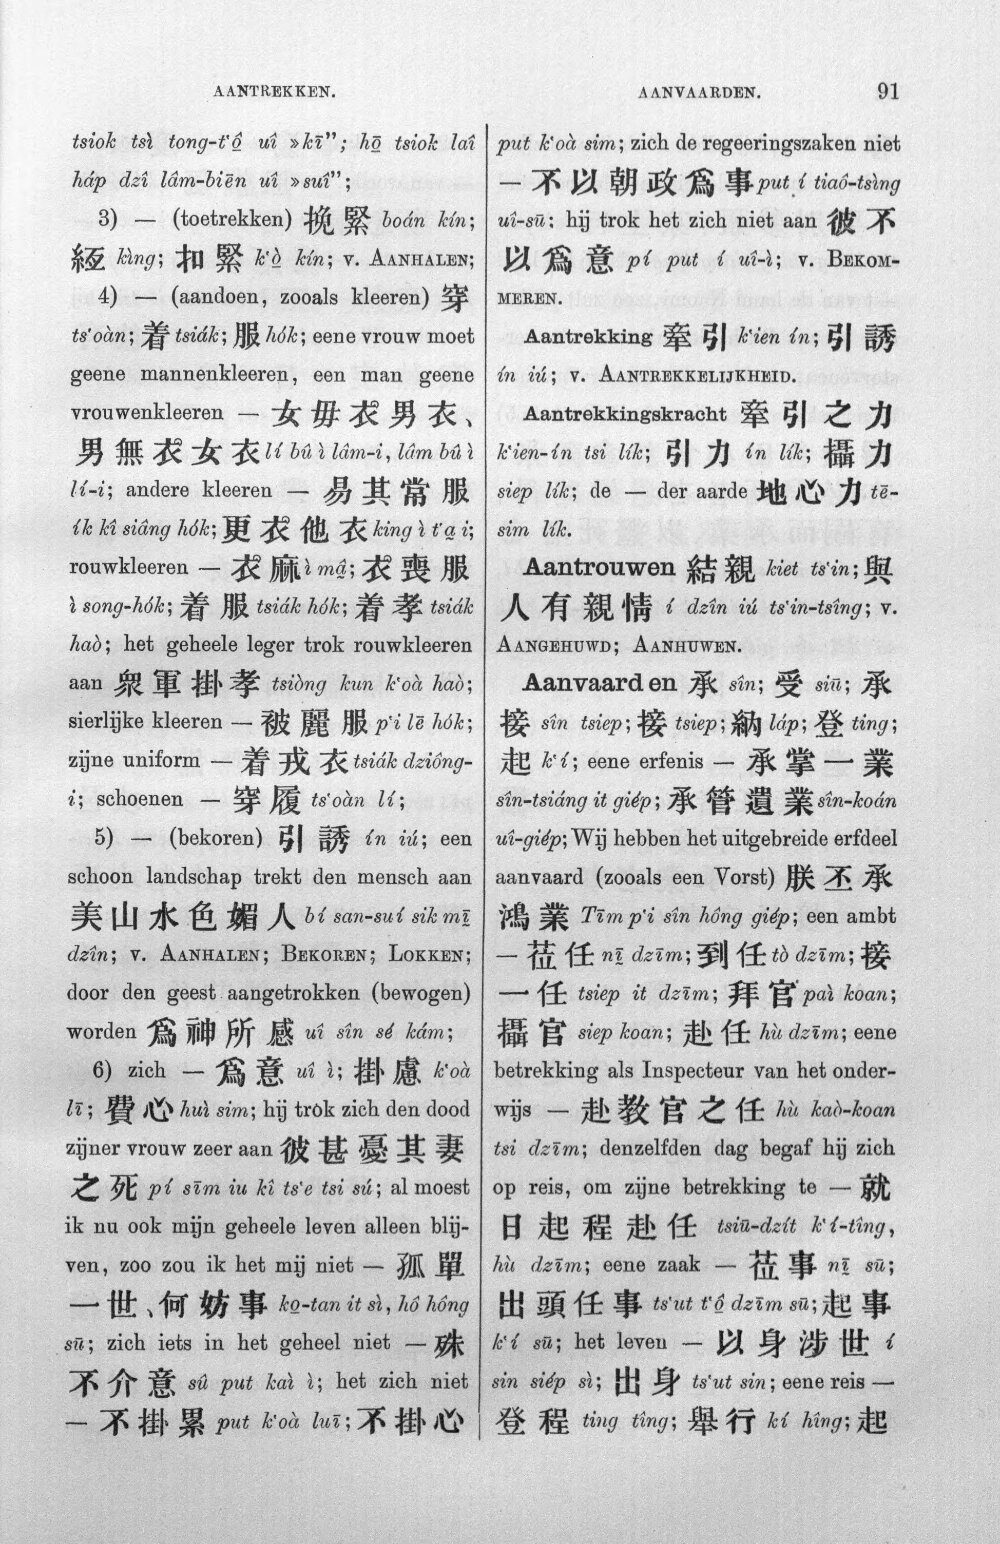 AANTREKKEN.
AANVAARDEN.
91
tsiok tsì tong-t‘ô̱ uî »kī”; hō̱ tsiok laî
háp dzî lâm-biēn uî »suî”;
3) — (toetrekken)挽緊 boán kín;
緪 kìng; 扣緊 k‘ò̱ kín; v. AANHALEN;
4) — (aandoen, zooals kleeren) 穿
ts‘oàn; 着 tsiák; 服 hók; eene vrouw moet
geene mannenkleeren, een man geene
vrouwenkleeren — 女毋衣男衣、
男無衣女衣 lí bû ì lâm-i, lâm bû ì
lí-i; andere kleeren — 易其常服
ík kî siâng hók; 更衣他衣 king ì t‘a̱ i;
rouwkleeren — 衣麻 ì mâ̱; 衣喪服
ì song-hók; 着服 tsiák hók; 着孝 tsiák
haò; het geheele leger trok rouwkleeren
aan 衆軍掛孝 tsiòng kun k‘oà haò;
sierlijke kleeren — 被麗服 p‘i lē hók;
zijne uniform — 着戎衣 tsiák dziông-
i; schoenen — 穿履 ts‘oàn lí;
5) — (bekoren) 引誘 ín iú; een
schoon landschap trekt den mensch aan
美山水色媚人 bí san-suí sik mī̱
dzîn; v. AANHALEN; BEKOREN; LOKKEN;
door den geest aangetrokken (bewogen)
worden 爲神所感 uî sîn sé kám;
6) zich — 爲意 uî ì; 掛慮 k‘oà
lī; 費心 huì sim; hij trok zich den dood
zijner vrouw zeer aan 彼甚憂其妻
之死 pí sīm iu kî ts‘e tsi sú; al moest
ik nu ook mijn geheele leven alleen blij-
ven, zoo zou ik het mij niet — 孤單
一世、何妨事 ko̱-tan it sì, hô hông
sū; zich iets in het geheel niet — 殊
不介意 sû put kaì ì; het zich niet
— 不掛累 put k‘oà luī; 不掛心
put k‘oà sim; zich de regeeringszaken niet
— 不以朝政爲事 put í tiaô-tsìng
uî-sū; hij trok het zich niet aan 彼不
以爲意 pí put í uî-ì; v. BEKOM-
MEREN.
Aantrekking 牽引 k‘ien ín; 引誘
ín iú; v. AANTREKKELIJKHEID.
Aantrekkingskracht 牽引之力
k‘ien-ín tsi lík; 引力 ín lík; 攝力
siep lík; de — der aarde 地心力 tē-
sim lík.
Aantrouwen 結親 kiet ts‘in; 與
人有親情 í dzîn iú ts‘in-tsîng; v.
AANGEHUWD; AANHUWEN.
Aanvaarden 承 sîn; 受 siū; 承
接 sîn tsiep; 接 tsiep; 納 láp; 登 ting;
起 k‘í; eene erfenis — 承掌一業
sîn-tsiáng it giép; 承管遺業 sîn-koán
uî-giép; Wij hebben het uitgebreide erfdeel
aanvaard (zooals een Vorst) 朕丕承
鴻業 Tīm p‘i sîn hông giép; een ambt
— 莅任 nī̱ dzīm; 到任 tò dzīm; 接
一任 tsiep it dzīm; 拜官 paì koan;
攝官 siep koan; 赴任 hù dzīm; eene
betrekking als Inspecteur van het onder-
wijs — 赴教官之任 hù kaò-koan
tsi dzīm; denzelfden dag begaf hij zich
op reis, om zijne betrekking te — 就
日起程赴任 tsiū-dzít k‘í-tîng,
hù dzīm; eene zaak — 莅事 nī̱ sū;
出頭任事 ts‘ut t‘ô̱ dzīm sū; 起事
k‘í sū; het leven — 以身涉世 í
sin siép sì; 出身 ts‘ut sin; eene reis —
登程 ting tîng; 舉行 kí hîng; 起